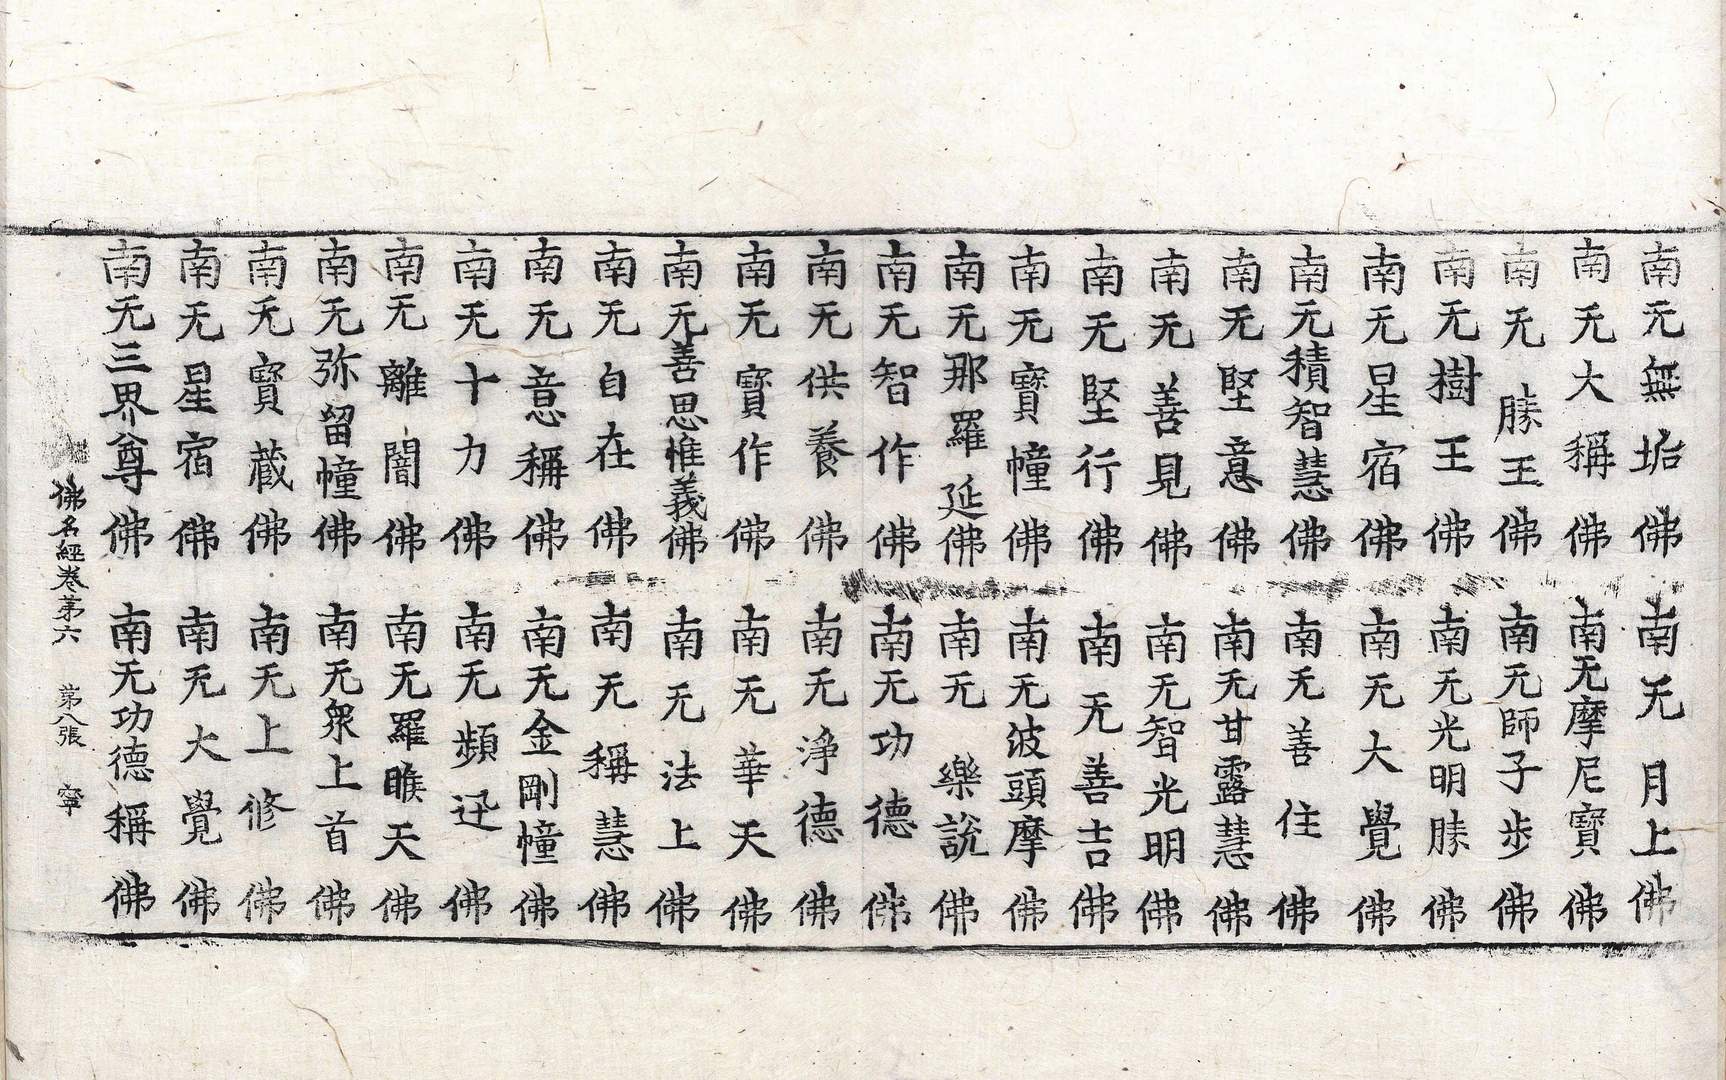 南无無垢佛　南无月上佛
南无大稱佛　南无摩尼寶佛
南无勝王佛　南无師子步佛
南无樹王佛　南无光明勝佛
南无星宿佛　南无大覺佛
南无積智慧佛　南无善住佛
南无堅意佛　南无甘露慧佛
南无善見佛　南无智光明佛
南无堅行佛　南无善吉佛
南无寶幢佛　南无波頭摩佛
南无那羅延佛　南无樂說佛
南无智作佛　南无功德佛
南无供養佛　南无淨德佛
南无寶作佛　南无華天佛
南无善思惟義佛　南无法上佛
南无自在佛　南无稱慧佛
南无意稱佛　南无金剛幢佛
南无十力佛　南无頻迅佛
南无離闇佛　南无羅睺天佛
南无弥留幢佛　南无衆上首佛
南无寶藏佛　南无上修佛
南无星宿佛　南无大覺佛
南无三界尊佛　南无功德稱佛
佛名經卷第六　第八張　寧